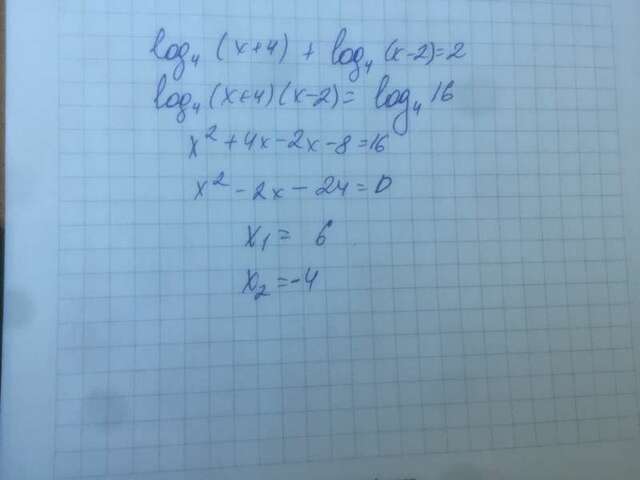 log₄ (x+4) + log₄ (x-2)=2
log₄ (x+4)(x-2)= log₄ 16
x² +4x-2x-8=16
x² -2x-24=0
x₁= 6
x₂=-4